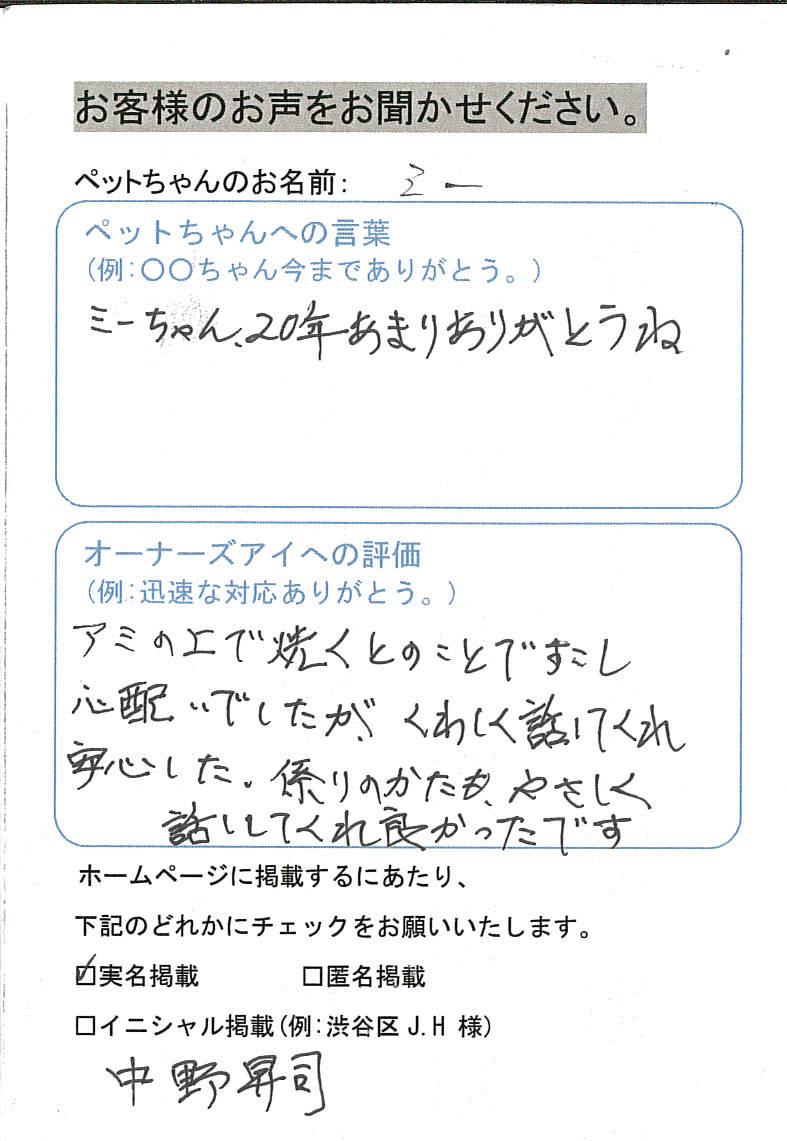 お客様のお声をお聞かせください。
ペットちゃんのお名前: ミー
ペットちゃんへの言葉
(例:〇〇ちゃん今までありがとう。)
ミーちゃん、20年あまりありがとうね
オーナーズアイへの評価
(例:迅速な対応ありがとう。)
アミの上で焼くとのことですこし
心配いでしたが、くわしく話してくれ
安心した。係りのかたも、やさしく
話いしてくれ良かったです
ホームページに掲載するにあたり、
下記のどれかにチェックをお願いいたします。
☑実名掲載 □匿名掲載
□イニシャル掲載(例:渋谷区 J.H 様)
中野昇司